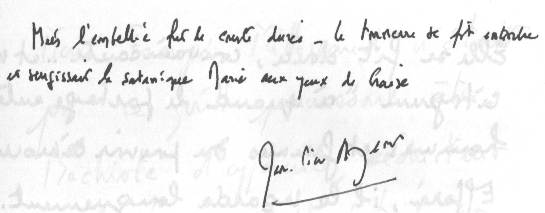 Mais l'embellie fut de courte durée _ le tonnerre se fit entendre
et surgissait le satanique Marie aux yeux de braise
Jean. Pier